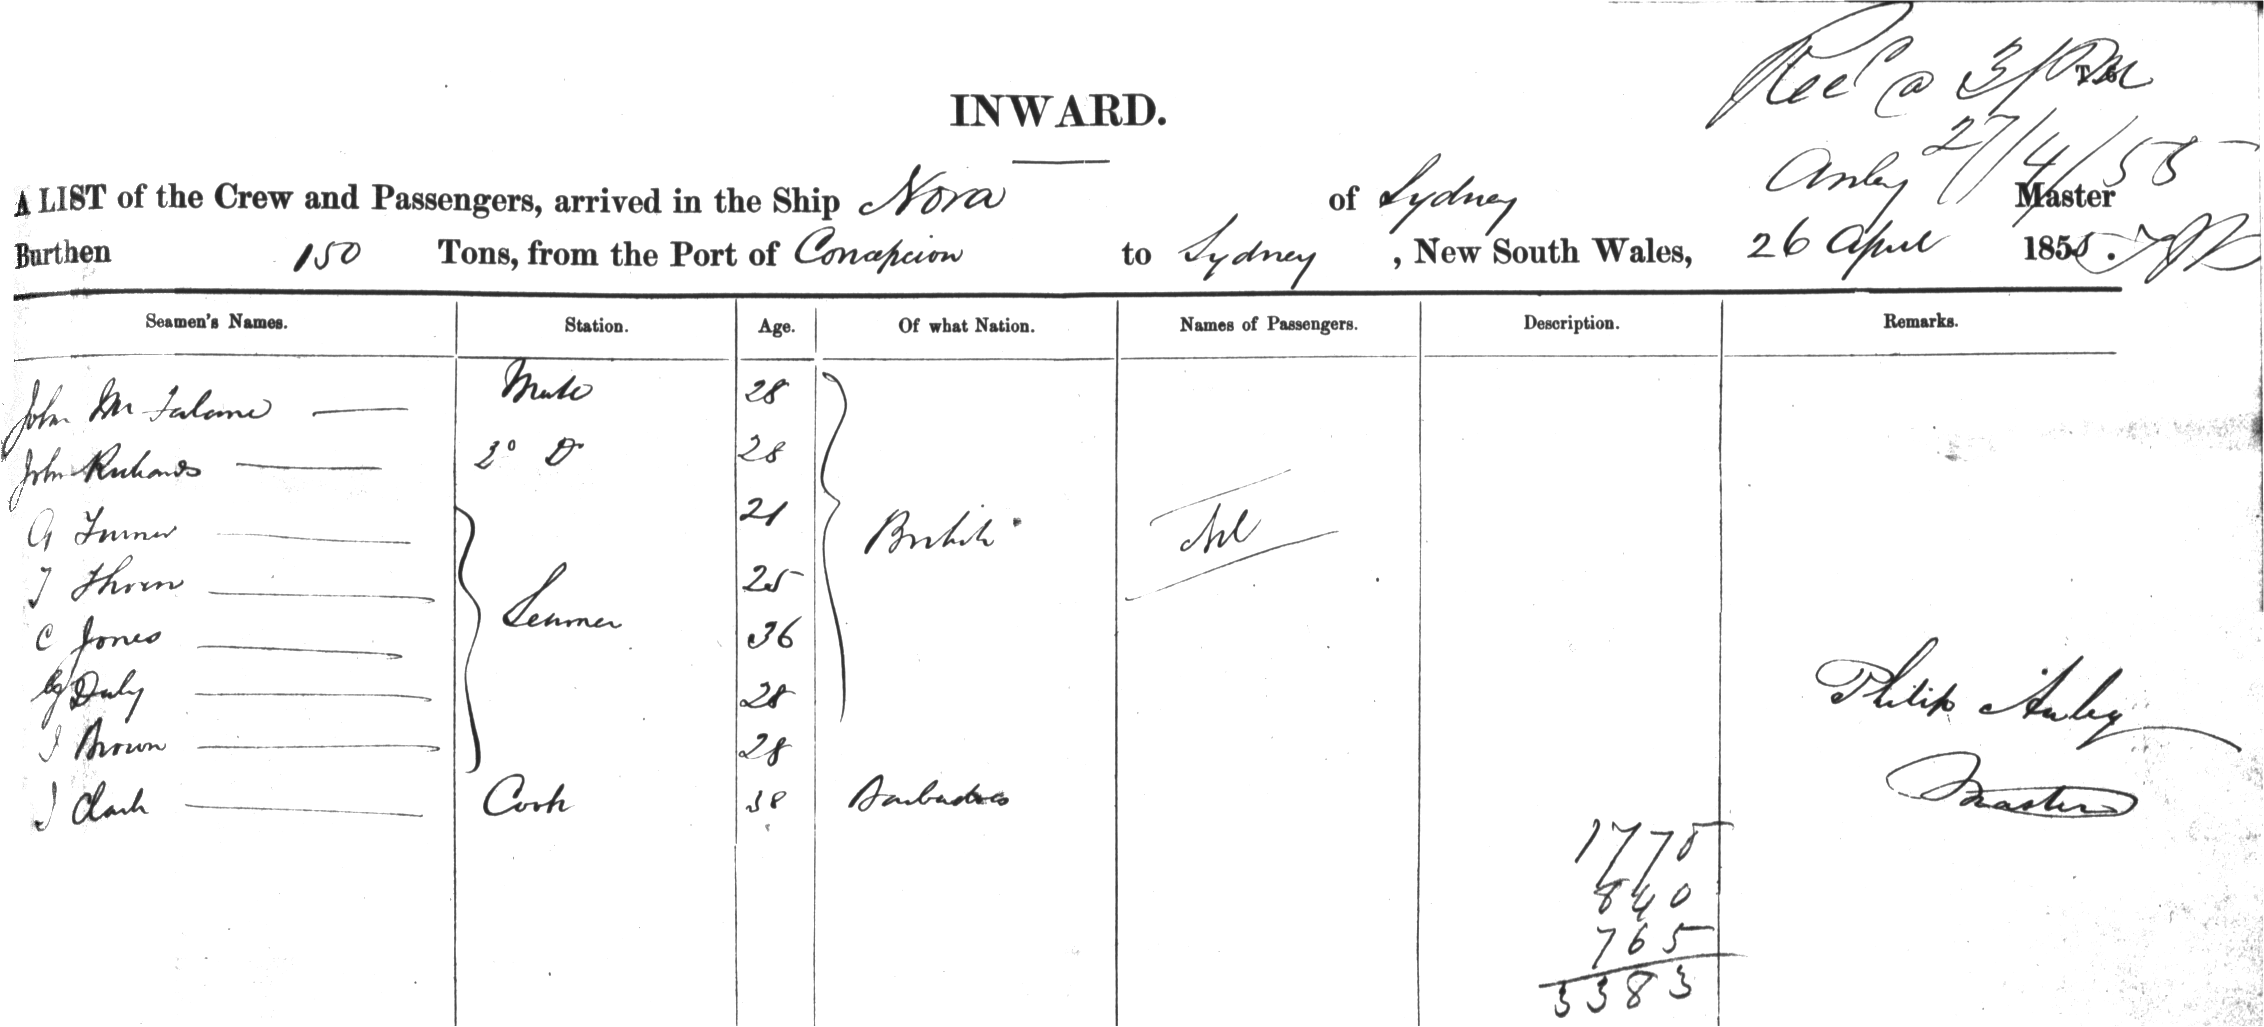 Rec'd @ 3/PM
27/4/55
INWARD.
A LIST of the Crew and Passengers, arrived in the Ship Nora of Sydney Anley Master
Burthen 150 Tons, from the Port of Concepcion to Sydney, New South Wales, 26 April 1855.
Seamen's Names. Station. Age. Of what Nation. Names of Passengers. Description. Remarks.
John Mate 28
John Richards 2º Dº 28
G Turner 21 British Nil
T Thorn Seamen 25
C Jones 36
Daly 28
J Brown 28
J Clark Cook 38 Barbadoes
Philip Anley
Master
1778
840
765
3383